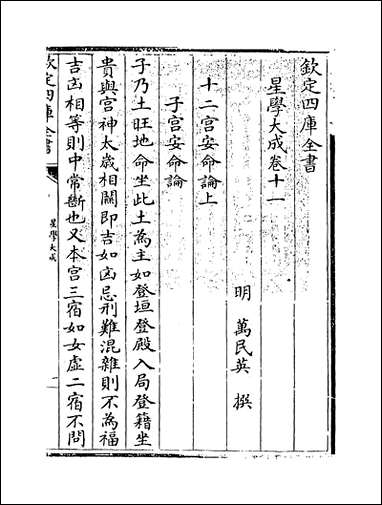 欽定四庫全書
星學大成卷十一
明 萬民英 撰
十二宫安命論上
子宫安命論
子乃土旺地命坐此土為主如登垣登殿入局登籍坐
貴與宫神太歳相關即吉如凶忌刑難混雜則不為福
吉凶相等則中常斷也又本宫三宿如女虚二宿不問
欽定四庫全書
星學大成
一